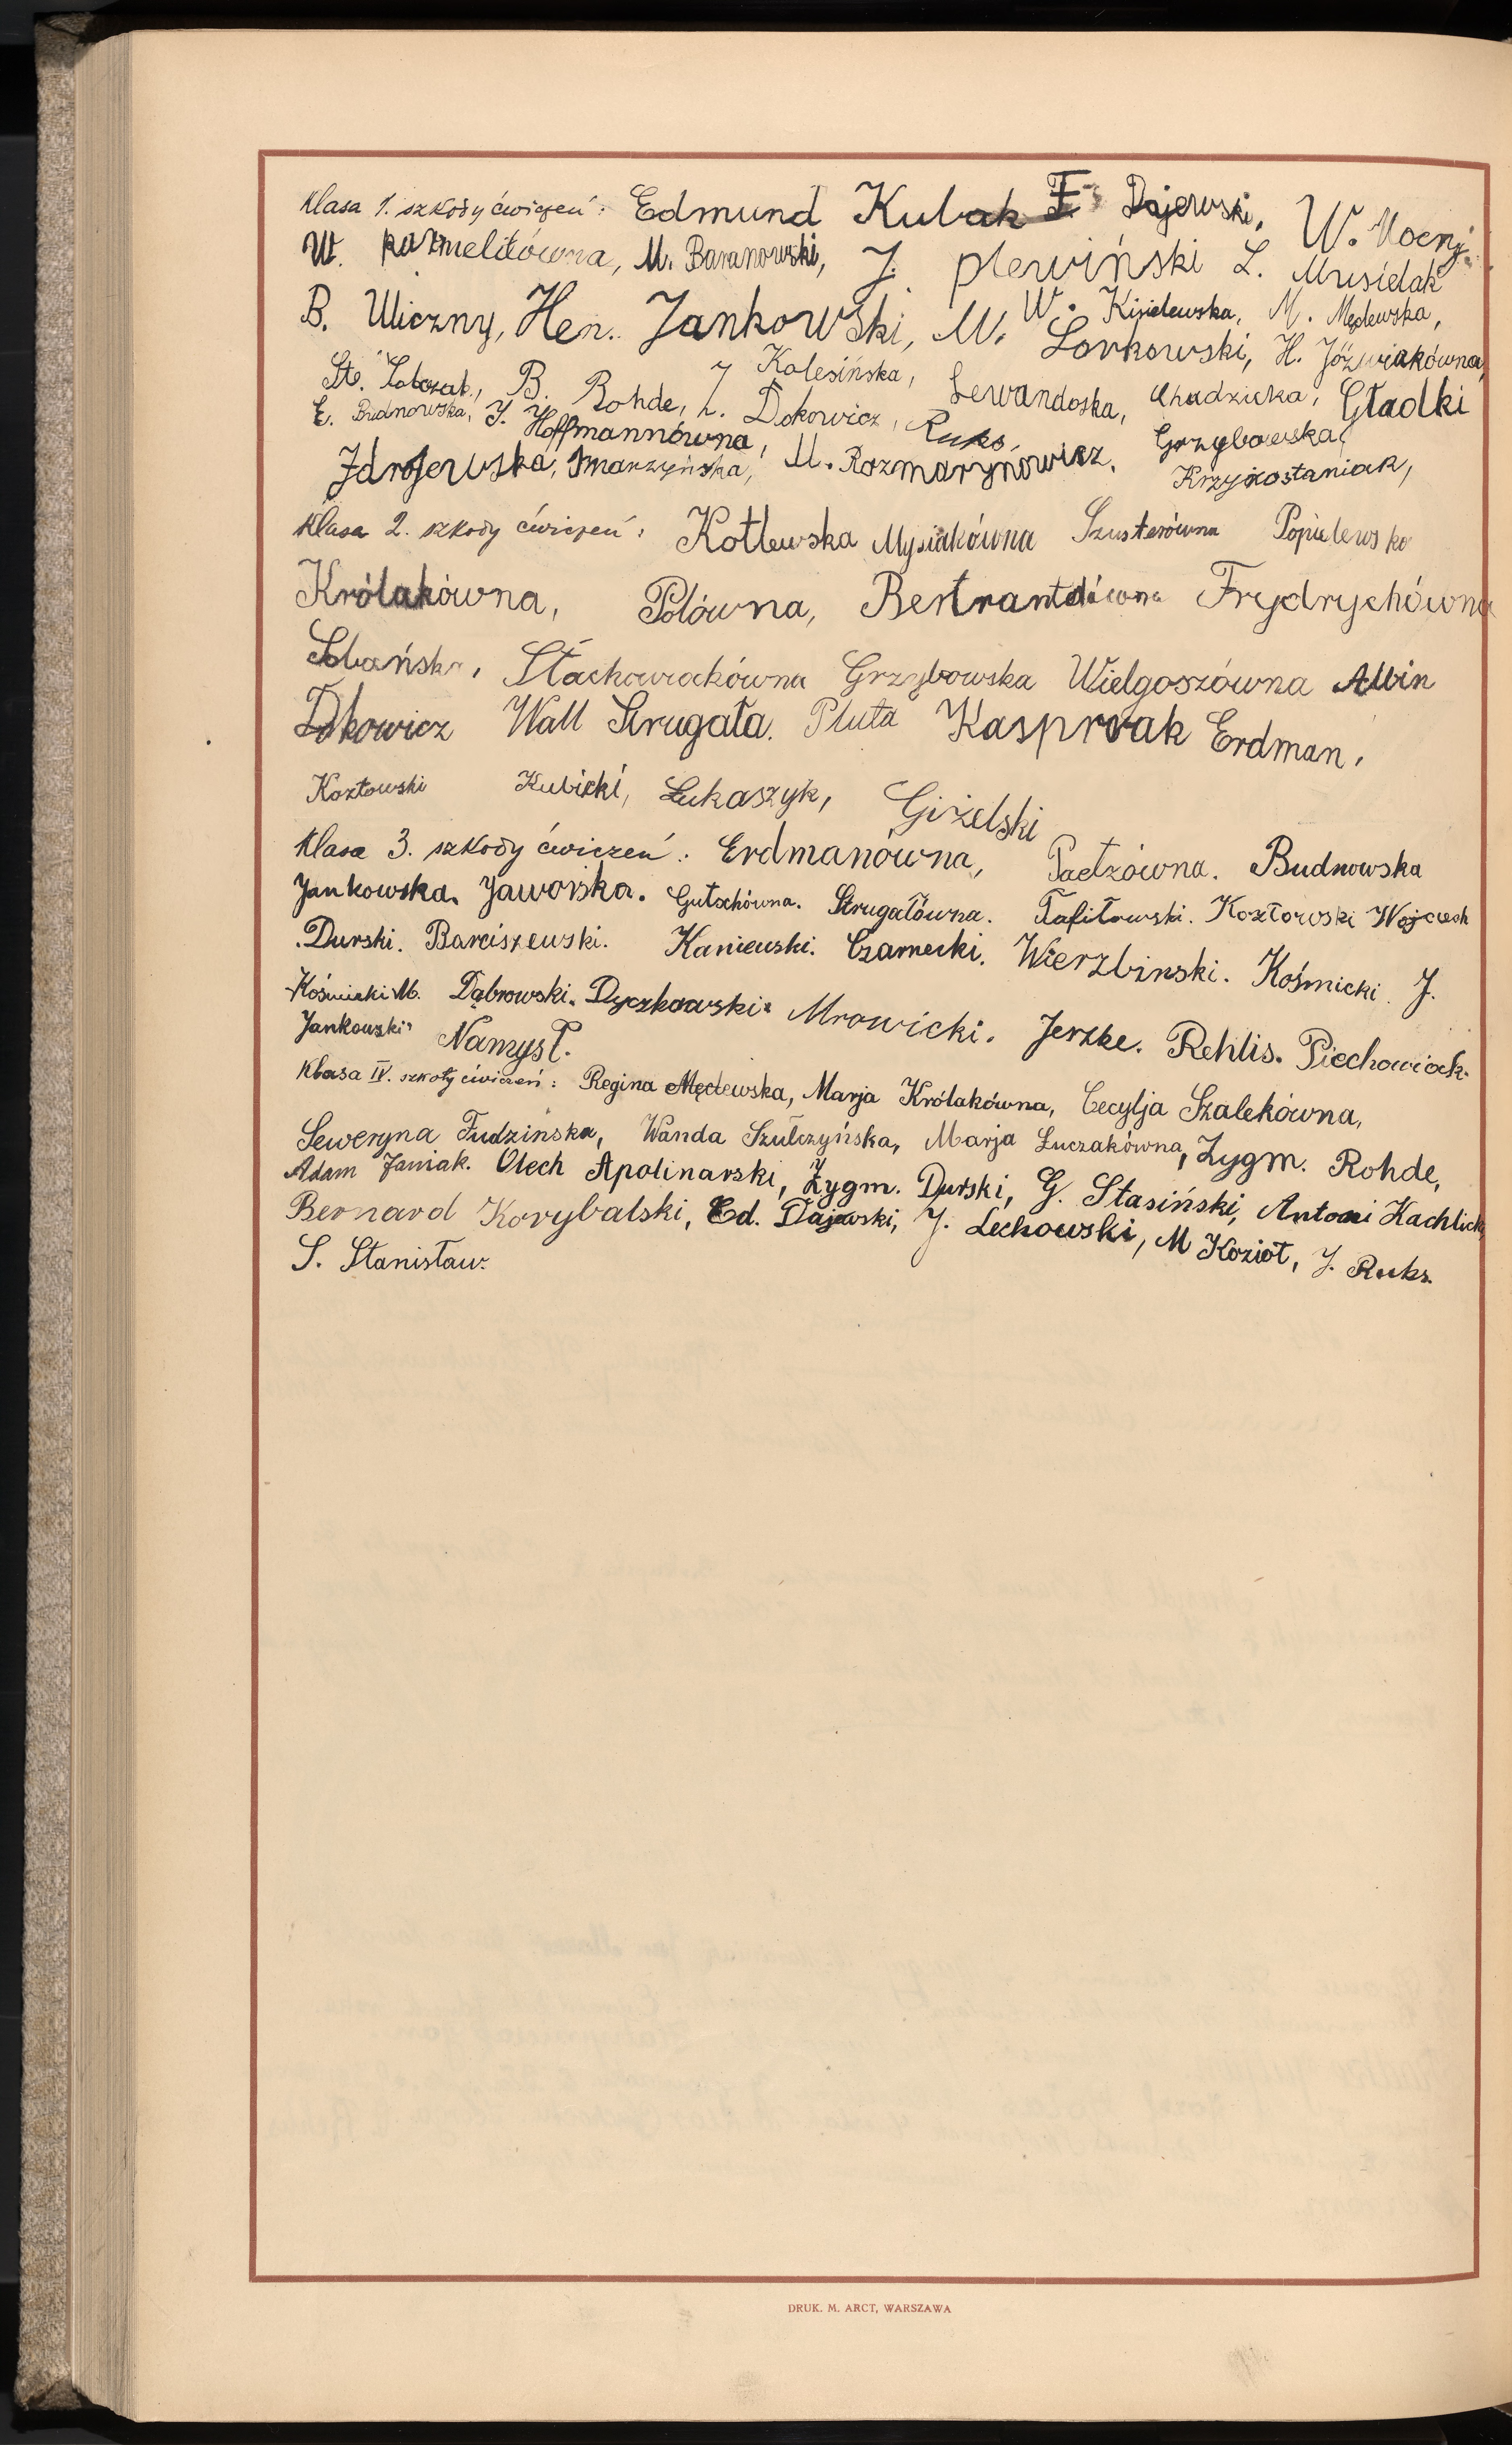 Klasa 1. szkoły ćwiczeń: Edmund Kubak F. Dajewski, W. Mocny
W. Karmelitówna, M. Baranowski, J. Plewiński L. Musielak
B. Uliczny, Hen. Jankowski, M. Lorkowski, W. Kisielewska, M. Mędlewska,
H. Jóźwiakówna,
St. B. Rohde, J Kolesińska, Lewandoska, Chudzicka, Gładki
E. Budnowska, J. Hoffmannówna, L. Dokowicz, Ruks, Grzybowska,
Zdrojewska, Smarzyńska, M. Rozmarynowicz, Krzyżostaniak,
Klasa 2. szkoły ćwiczeń: Kotlewska Mysiakówna Szusterówna Popielewska
Królakówna, Polówna, Bertrantdówna Frydrychówna
Sobańska, Stachowiakówna Grzybowska Wielgoszówna Albin
Dokowicz Wall Strugała. Pluta Kasprzak Erdman,
Kozłowski Kubicki, Łukaszyk, Giżelski
Klasa 3. szkoły ćwiczeń: Erdmanówna, Paetzówna. Budnowska
Jankowska. Jaworska. Gutschówna. Strugałówna. Tafiłowski. Kozłowski Wojciech
Durski. Barciszewski. Kaniewski. Czarnecki. Wierzbinski. Kośmicki J.
Kośmicki M. Dąbrowski. Dyczkowski. Mrowicki. Jerzke. Rehlis. Piechowiak.
Jankowski. Namysł.
Klasa IV. szkoły ćwiczeń: Regina Mędlewska, Marja Królakówna, Cecylja Szalekówna,
Seweryna Fudzinska, Wanda Szulczyńska, Marja Łuczakówna, Zygm. Rohde,
Adam Janiak. Olech Apolinarski, Zygm. Durski, G. Stasiński, Antoni Kachlicki
Bernard Korybalski, Ed. Dajewski, J. Lechowski, M Kozioł, J. Ruks.
S. Stanisław.
DRUK. M. ARCT, WARSZAWA